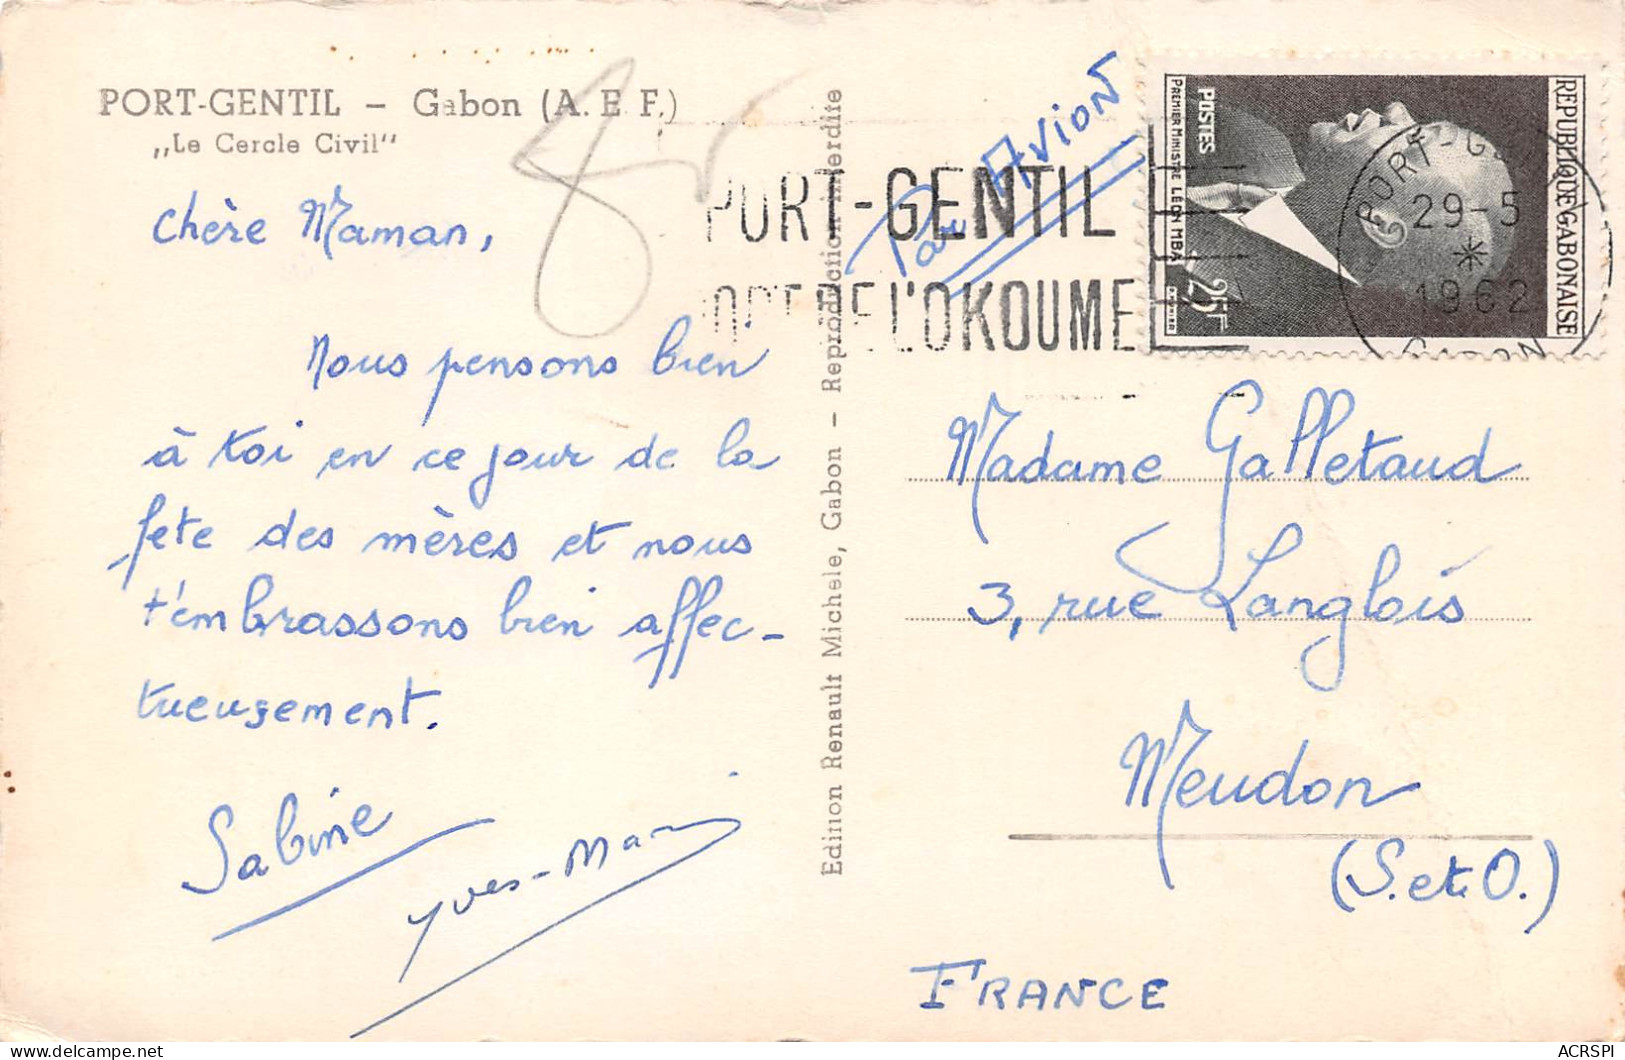 PORT-GENTIL – Gabon (A. E. F.)
„Le Cercle Civil"
Chère Maman,
Nous pensons bien
à toi en ce jour de la
fête des mères et nous
t'embrassons bien affec-
tueusement.
Sabine
Yves-Mari
Edition Renault Michele, Gabon – Reproduction interdite
Par AVION
PORT-GENTIL
PORT DE L'OKOUME
REPUBLIQUE GABONAISE
POSTES
PREMIER MINISTRE LÉON MBA
25F
PORT-GENTIL
29-5
*
1962
GABON
Madame Galletaud
3, rue Langlois
Meudon
(S. et O.)
FRANCE
ACRSPI